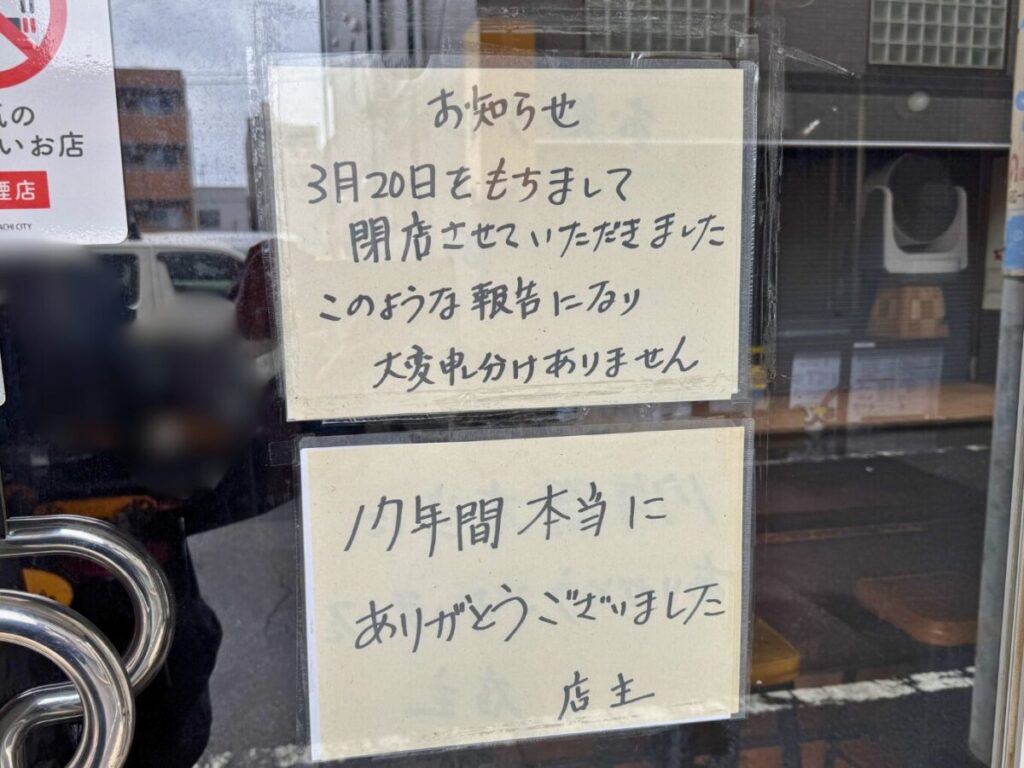 いお店
煙店
ACHI CITY
お知らせ
3月20日をもちまして
閉店させていただきました
このような報告になり
大変申し分けありません
17年間 本当に
ありがとうございました
店主